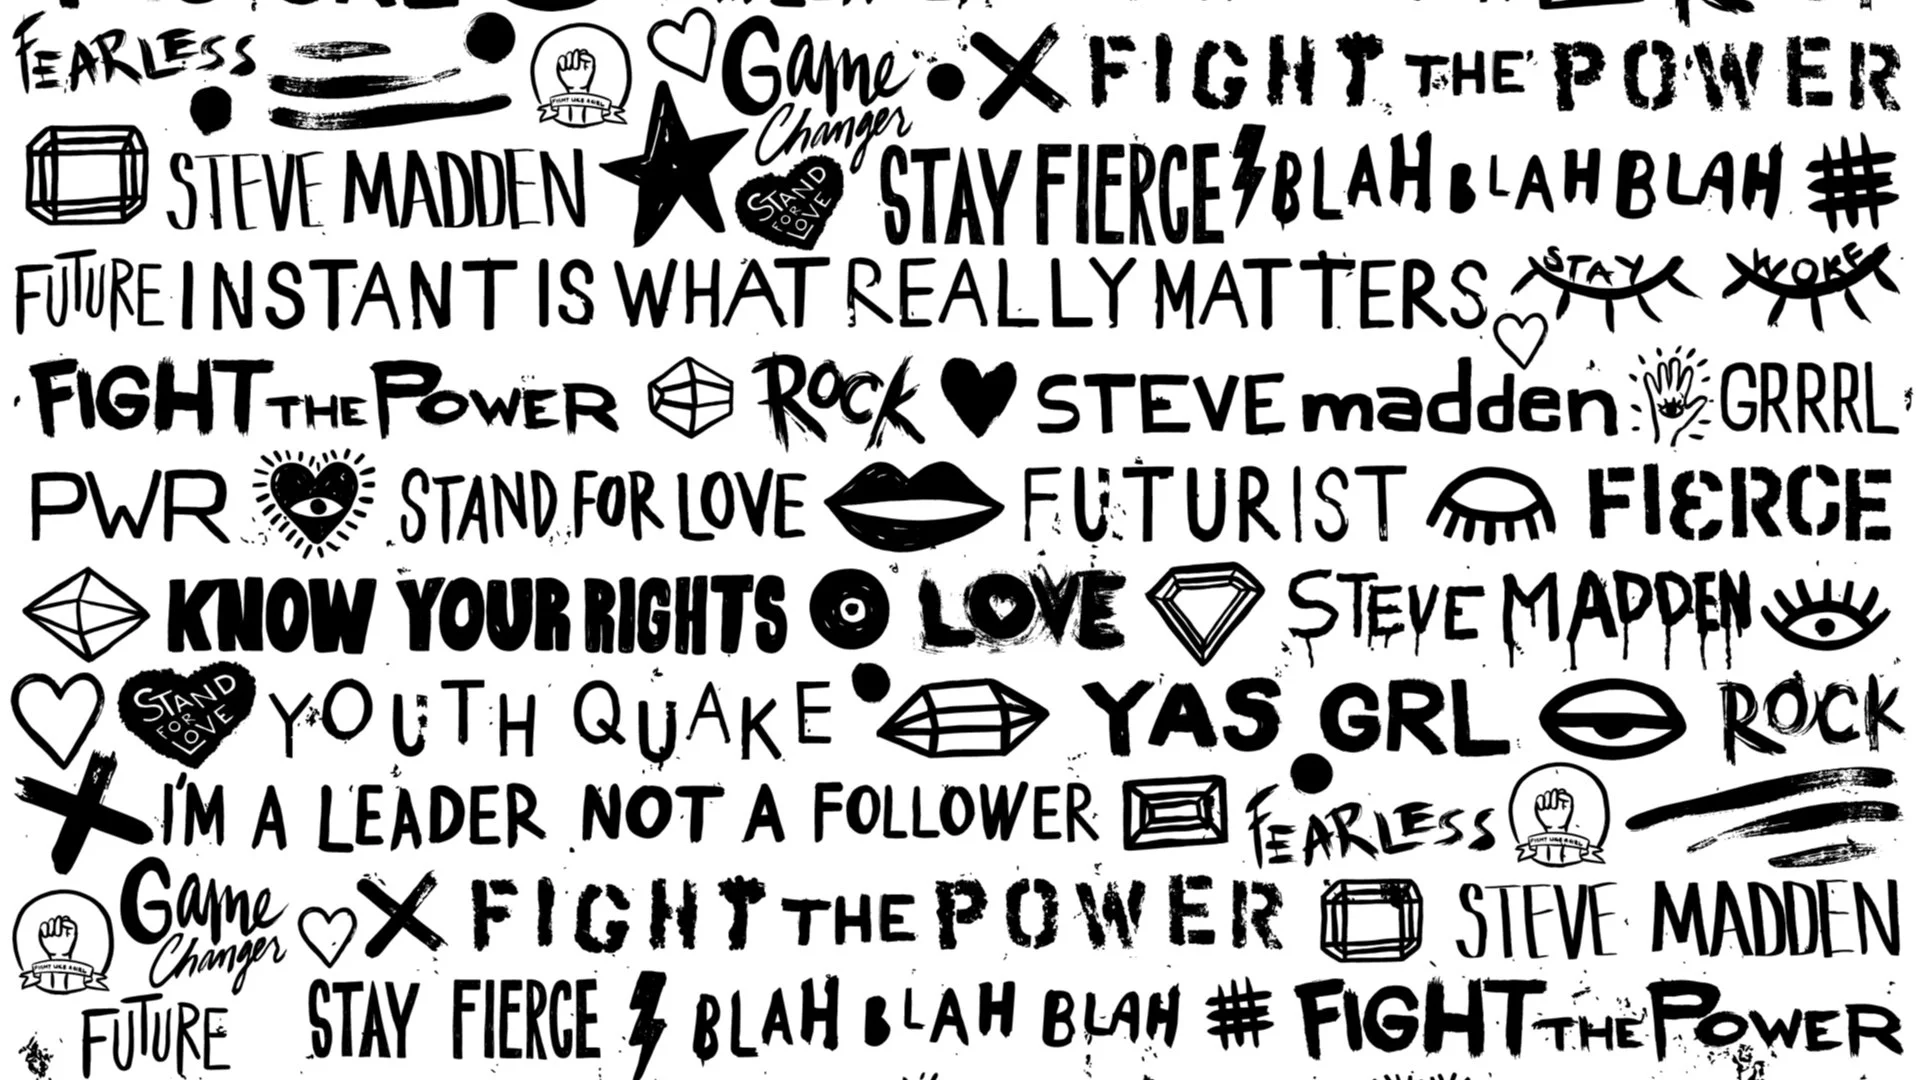 FEARLESS FIGHT LIKE A GIRL Game Changer FIGHT THE POWER
STEVE MADDEN STAND FOR LOVE STAY FIERCE BLAH BLAH BLAH #
FUTURE INSTANT IS WHAT REALLY MATTERS STAY WOKE
FIGHT THE POWER ROCK STEVE madden GRRRL
PWR STAND FOR LOVE FUTURIST FIERCE
KNOW YOUR RIGHTS LOVE STEVE MADDEN
STAND FOR LOVE YOUTH QUAKE YAS GRL ROCK
I'M A LEADER NOT A FOLLOWER FEARLESS FIGHT LIKE A GIRL
FIGHT LIKE A GIRL Game Changer FIGHT THE POWER STEVE MADDEN
FUTURE STAY FIERCE BLAH BLAH BLAH # FIGHT THE POWER